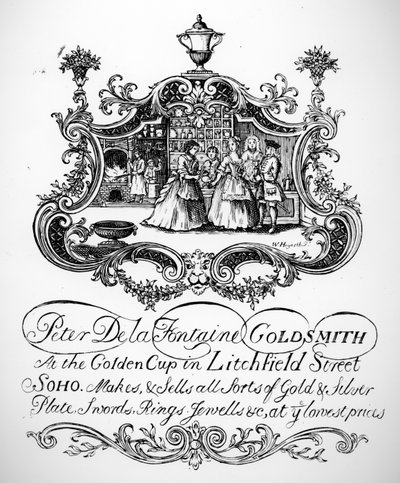 W. Hogarth
Peter De la Fontaine GOLDSMITH
At the Golden Cup in Litchfield Street
SOHO. Makes, & Sells all Sorts of Gold & Silver
Plate, Swords, Rings, Jewells &c, at ye lowest prices